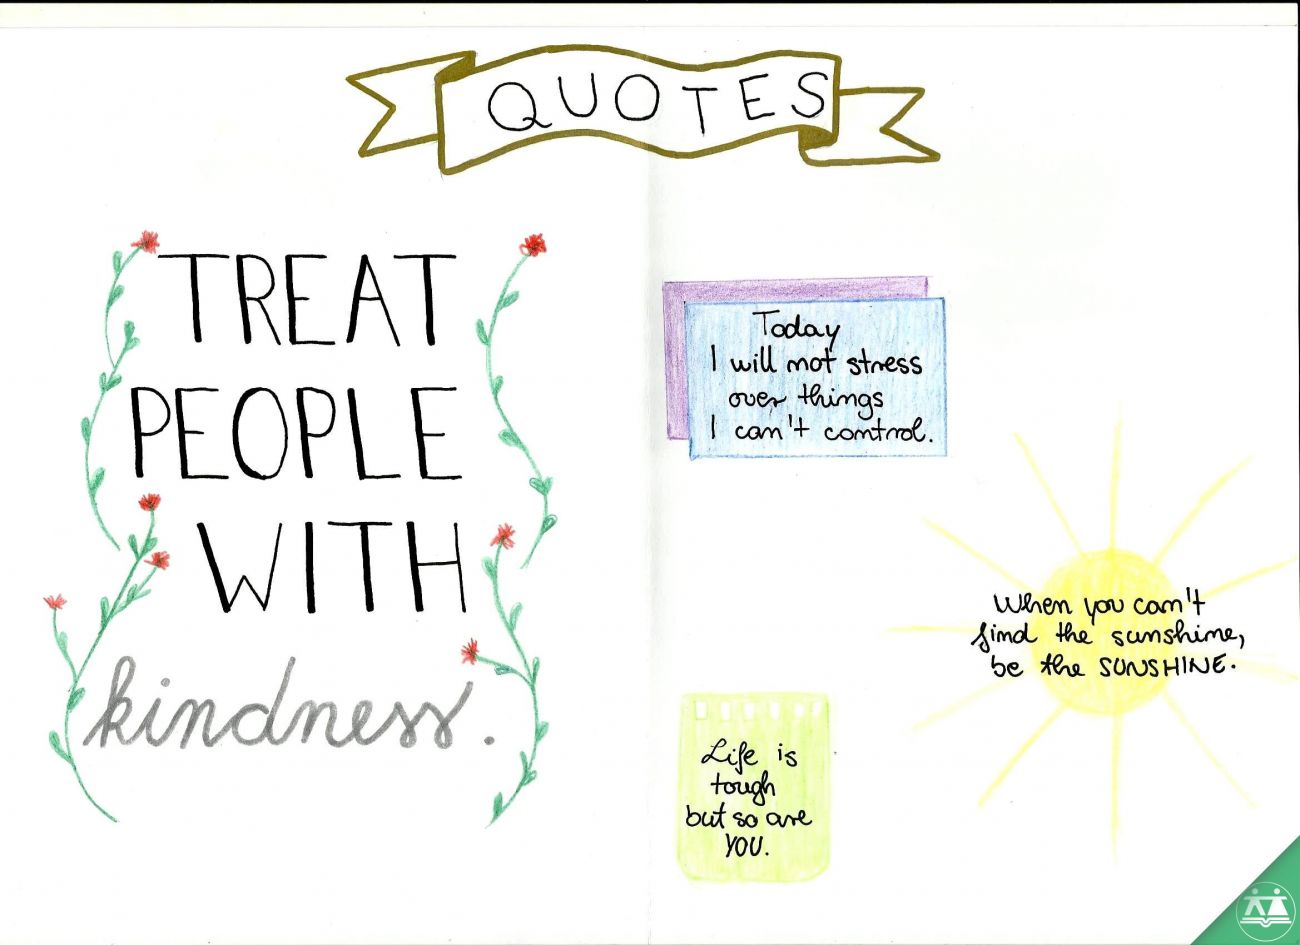 QUOTES
TREAT
PEOPLE
WITH
kindness.
Today
I will not stress
over things
I can't control.
When you can't
find the sunshine,
be the SUNSHINE.
Life is
tough
but so are
YOU.